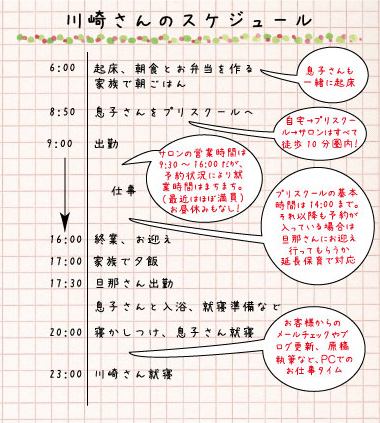 川崎さんのスケジュール
6:00 起床、朝食とお弁当を作る
家族で朝ごはん
息子さんも
一緒に起床
8:50 息子さんをプリスクールへ
自宅→プリスクー
ル→サロンはすべて
徒歩10分圏内!
9:00 出勤
サロンの営業時間は
9:30~16:00だが、
予約状況により就
業時間はまちまち。
(最近はほぼ満員)
お昼休みもなし!
仕事
プリスクールの基本
時間は14:00まで。
それ以降も予約が
入っている場合は
旦那さんにお迎え
行ってもらうか
延長保育で対応
16:00 終業、お迎え
17:00 家族で夕飯
17:30 旦那さん出勤
息子さんと入浴、就寝準備など
20:00 寝かしつけ、息子さん就寝
お客様からの
メールチェックやブ
ログ更新、原稿
執筆など、PCでの
お仕事タイム
23:00 川崎さん就寝